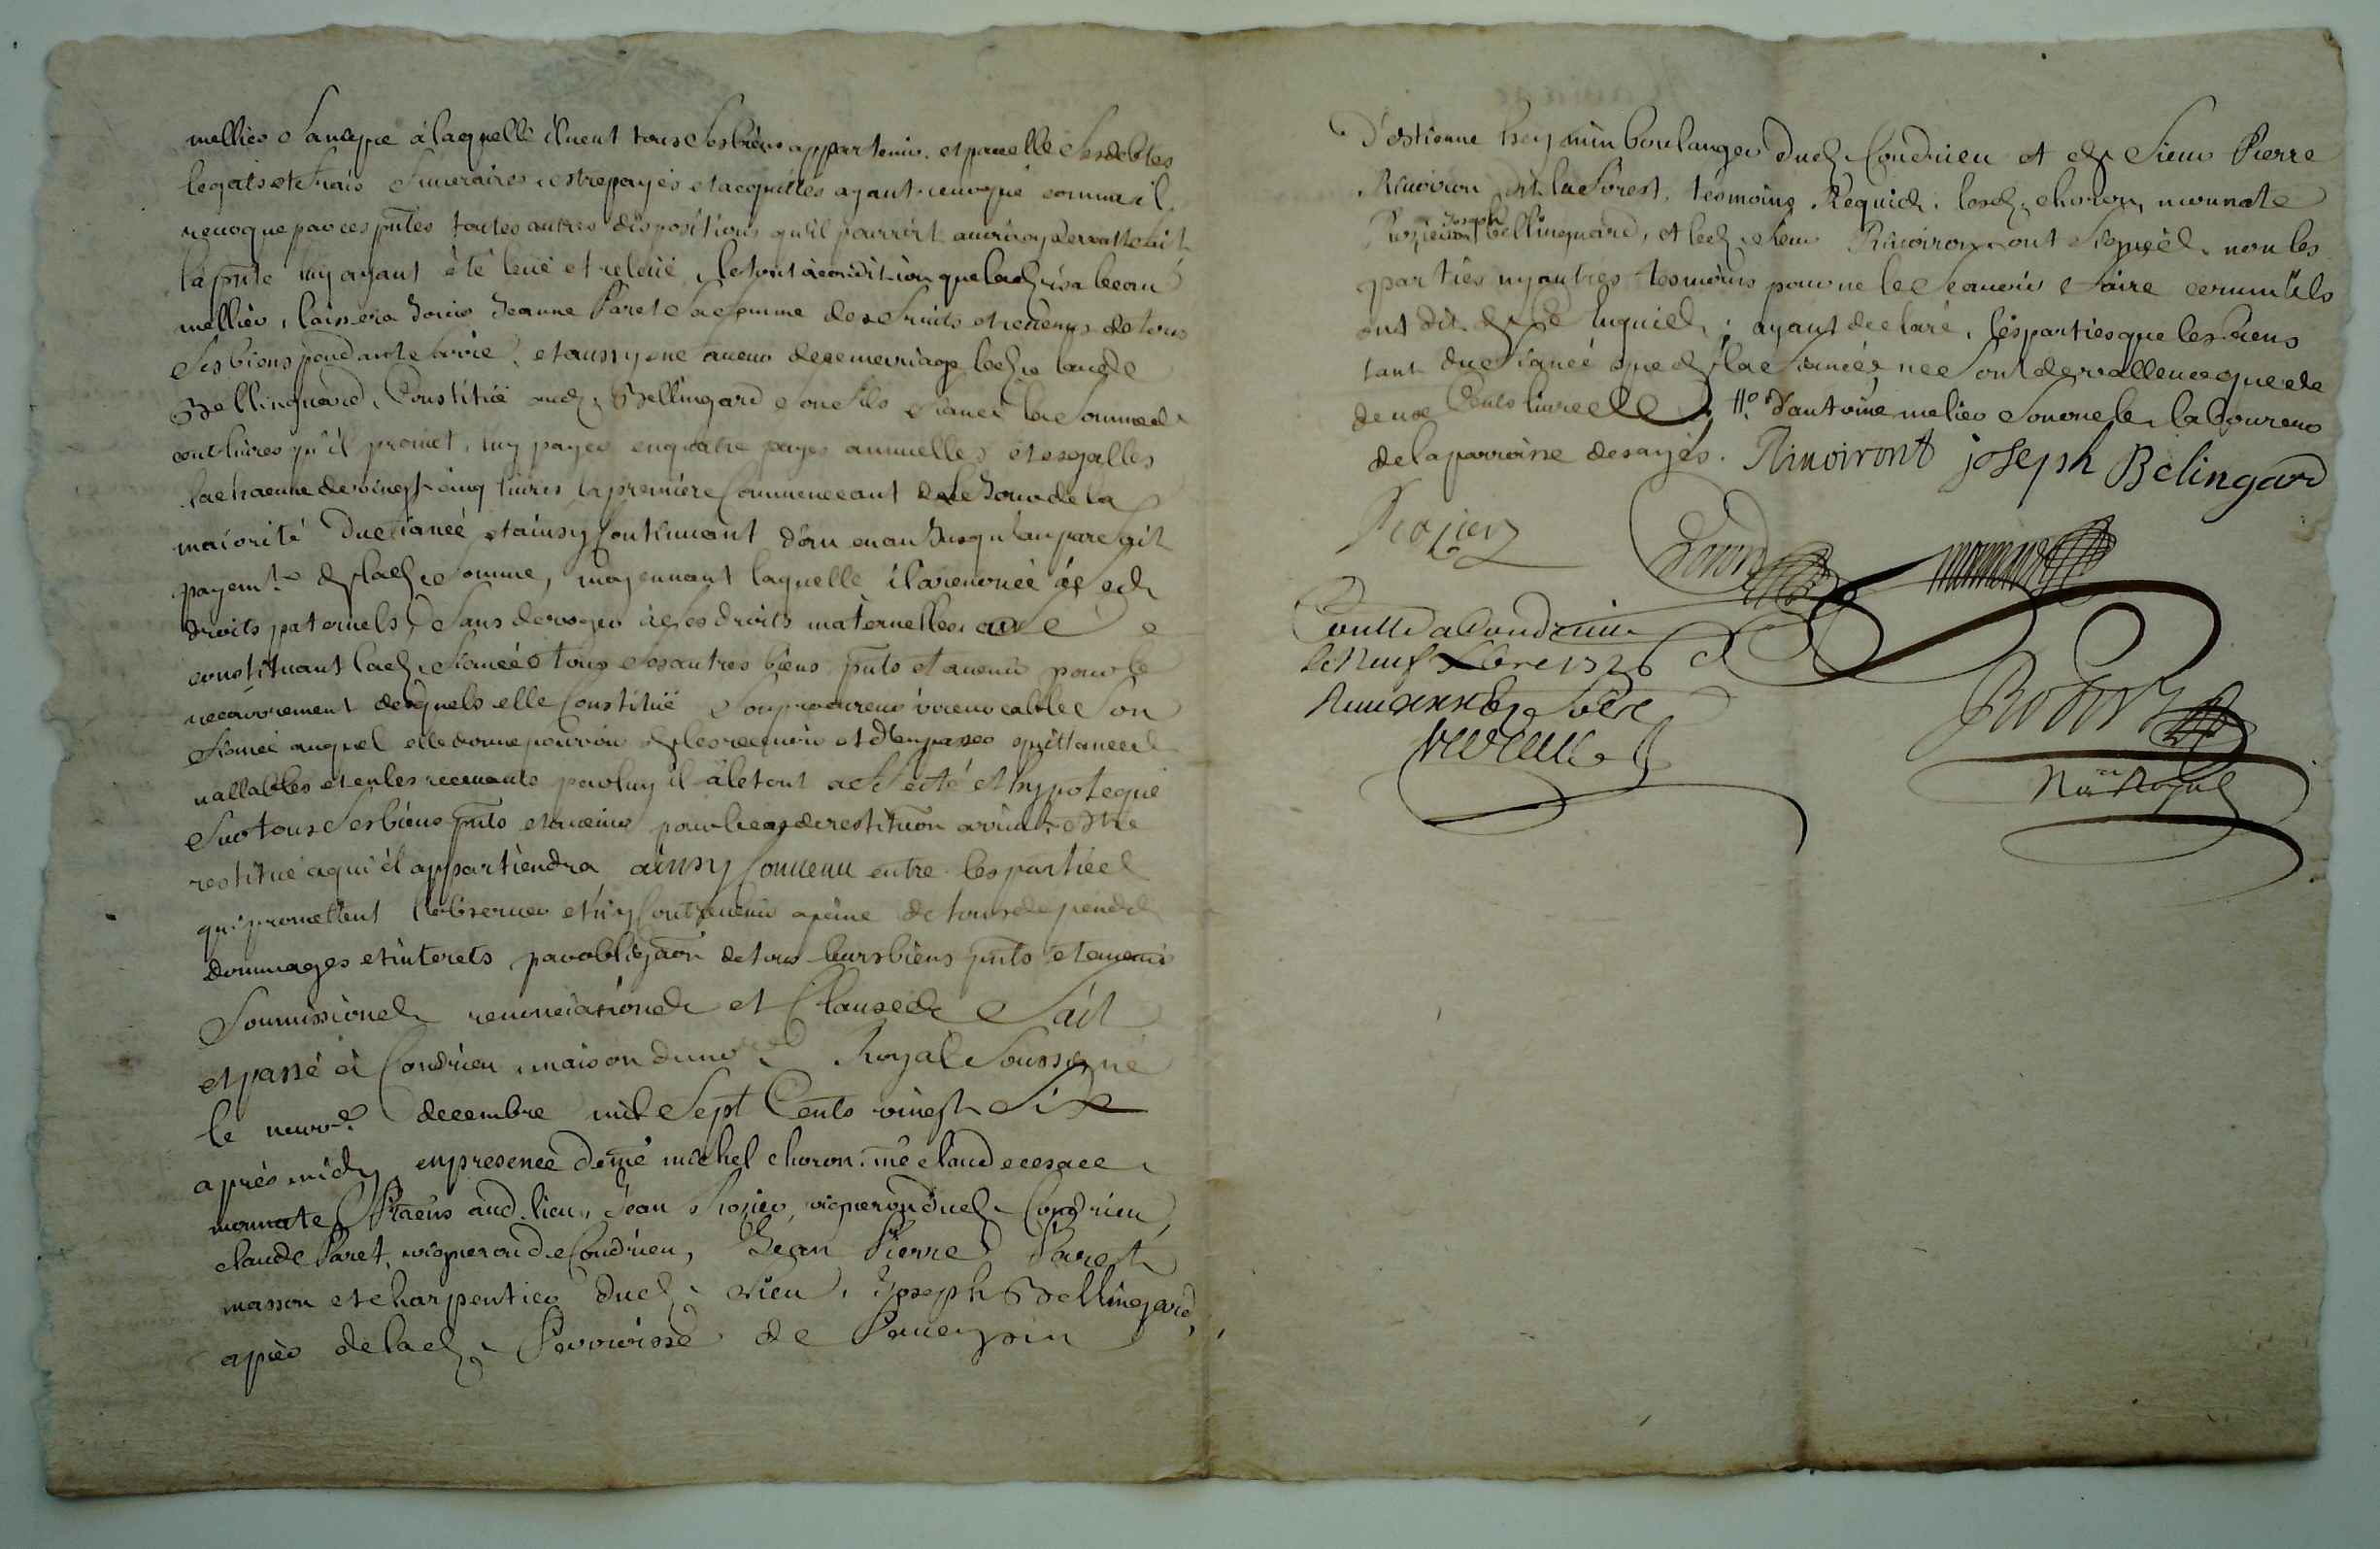 mellier sa niepce a laquelle il veut tous ses biens appartenir et par elle ses debtes
legats et frais funeraires estre payés et acquittés ayant revoqué comme il
revoque par ces pntes toutes autres dispositions qu'il pourroit avoir
la pnte luy ayant été leüe et releüe, le tout à condition que lad. isabeau
mellier, laissera jouir jeanne Paret sa femme des fruits et revenus de tous
ses biens pendant sa vie, et aussy en faveur de ce mariage led. claude
Bellinguard, Constitüe aud. Bellingard son fils fiancé la somme de
cent livres qu'il promet, luy payer en quatre payes annuelles et esgalles
la chacune de vingt cinq livres la premiere Commenceant le Jour de la
maiorité du fiancé et ainsy Continuant d'an en an Jusqu'au parfait
payemt. de lad. somme, moyennant laquelle il a renoncé à ses
droits paternels, sans deroger à ses droits maternelles
constituant lad. fiancée tous ses autres biens pnts et avenir pour le
recouvrement desquels elle Constitüe son procureur irrevocable son
fiancé auquel elle donne pouvoir de les recevoir et d'en passer quittances
vallables et en les recevants par luy il à le tout affecté et hypotequé
sur tous ses biens pnts et avenir pour le cas de restitution arrivant estre
restitué a qui il appartiendra ainsy Convenu entre les parties
qui promettent l'observer et n'y Contrevenir a peine de tous depends
dommages et interets par obligaon de tous leurs biens pnts et avenir
Soumissions renonciations et Clauses fait
et passé à Condrieu, maison du no.re Royal Soussigné
le neuv.e decembre mil Sept Cents vingt Six
après midy en presence de me michel choron, me claude cesar
monnate Praens aud. lieu, Jean Rozier, vigneron dud. Condrieu
claude Paret, vigneron de Condrieu, Jean Pierre Paret
masson et charpentier dud. lieu, Joseph Bellingard,
de lad. Parroisse de
D'estienne heymin boulanger dud. Condrieu et de Sieur Pierre
Rivoiron dit la forest, tesmoins Requis, lesd. choron, monnate
Rozier, Joseph bellinguard, et led. sieur Rivoiron ont signés, non les
parties ny autres tesmoins pour ne le scavoir faire comm'ils
ont dit de ce Enquis; ayant declaré, les parties que les biens
tant du fiancé que de la fiancée ne sont de valleur que de
deux Cents livres d'antoine melier son oncle laboureur
de la parroisse de sayés. Rivoiront joseph Belingard
Rozier Choron monnate
Contllé a Condrieu
le neuf Xbre 1726
Robert
No.re Royal